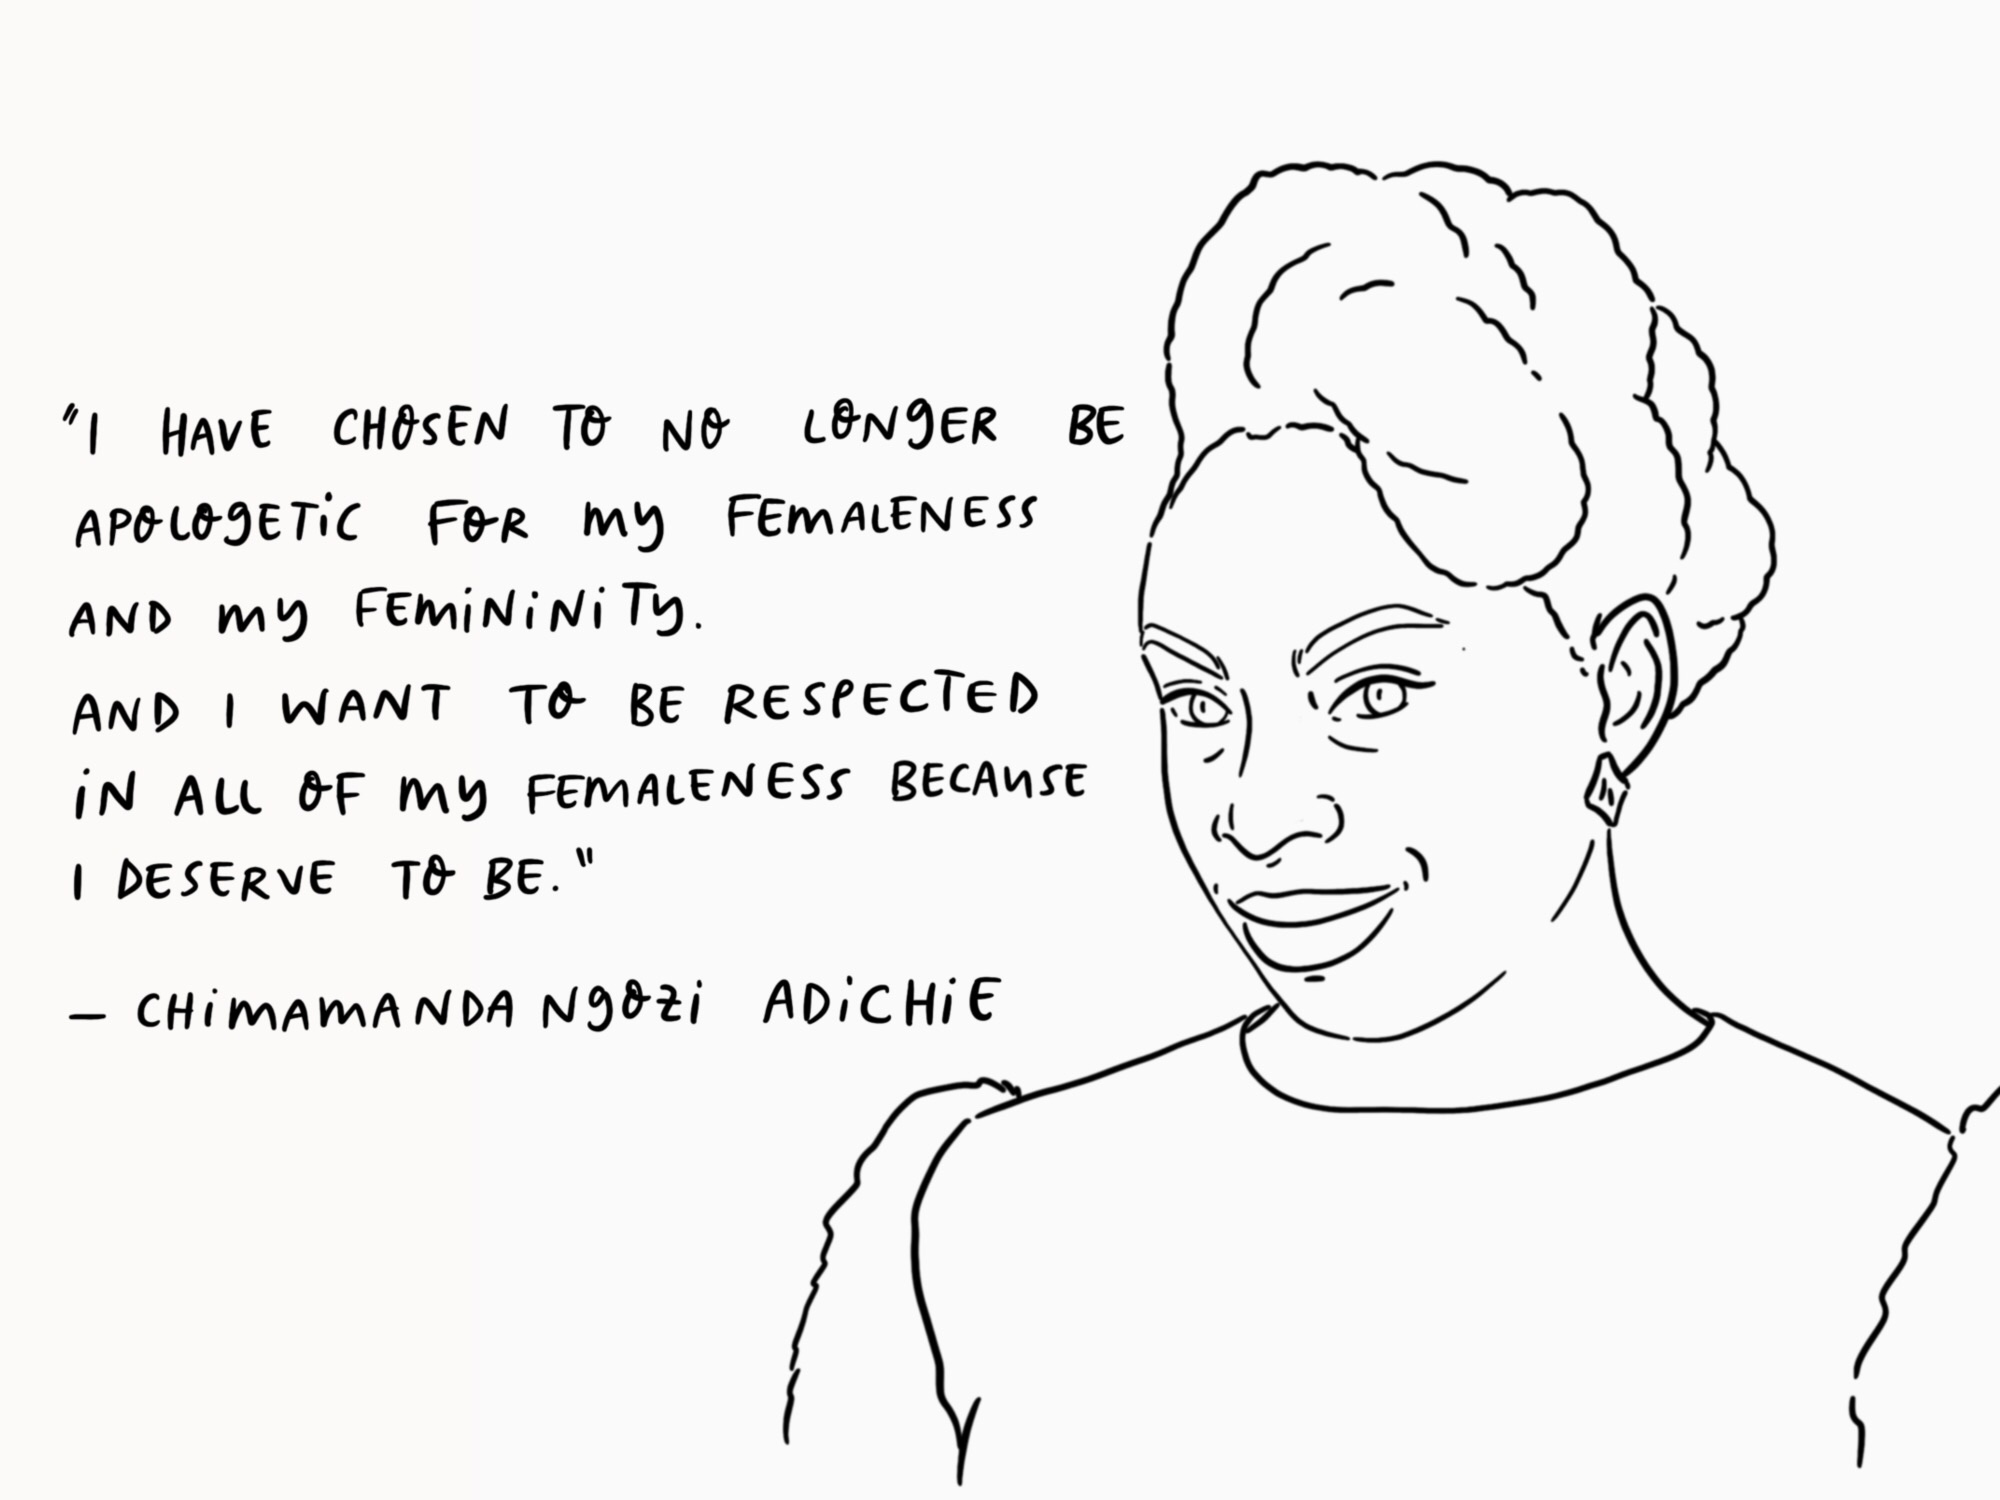 "I HAVE CHOSEN TO NO LONGER BE
APOLOGETIC FOR MY FEMALENESS
AND MY FEMININITY.
AND I WANT TO BE RESPECTED
IN ALL OF MY FEMALENESS BECAUSE
I DESERVE TO BE."
— CHIMAMANDA NGOZI ADICHIE